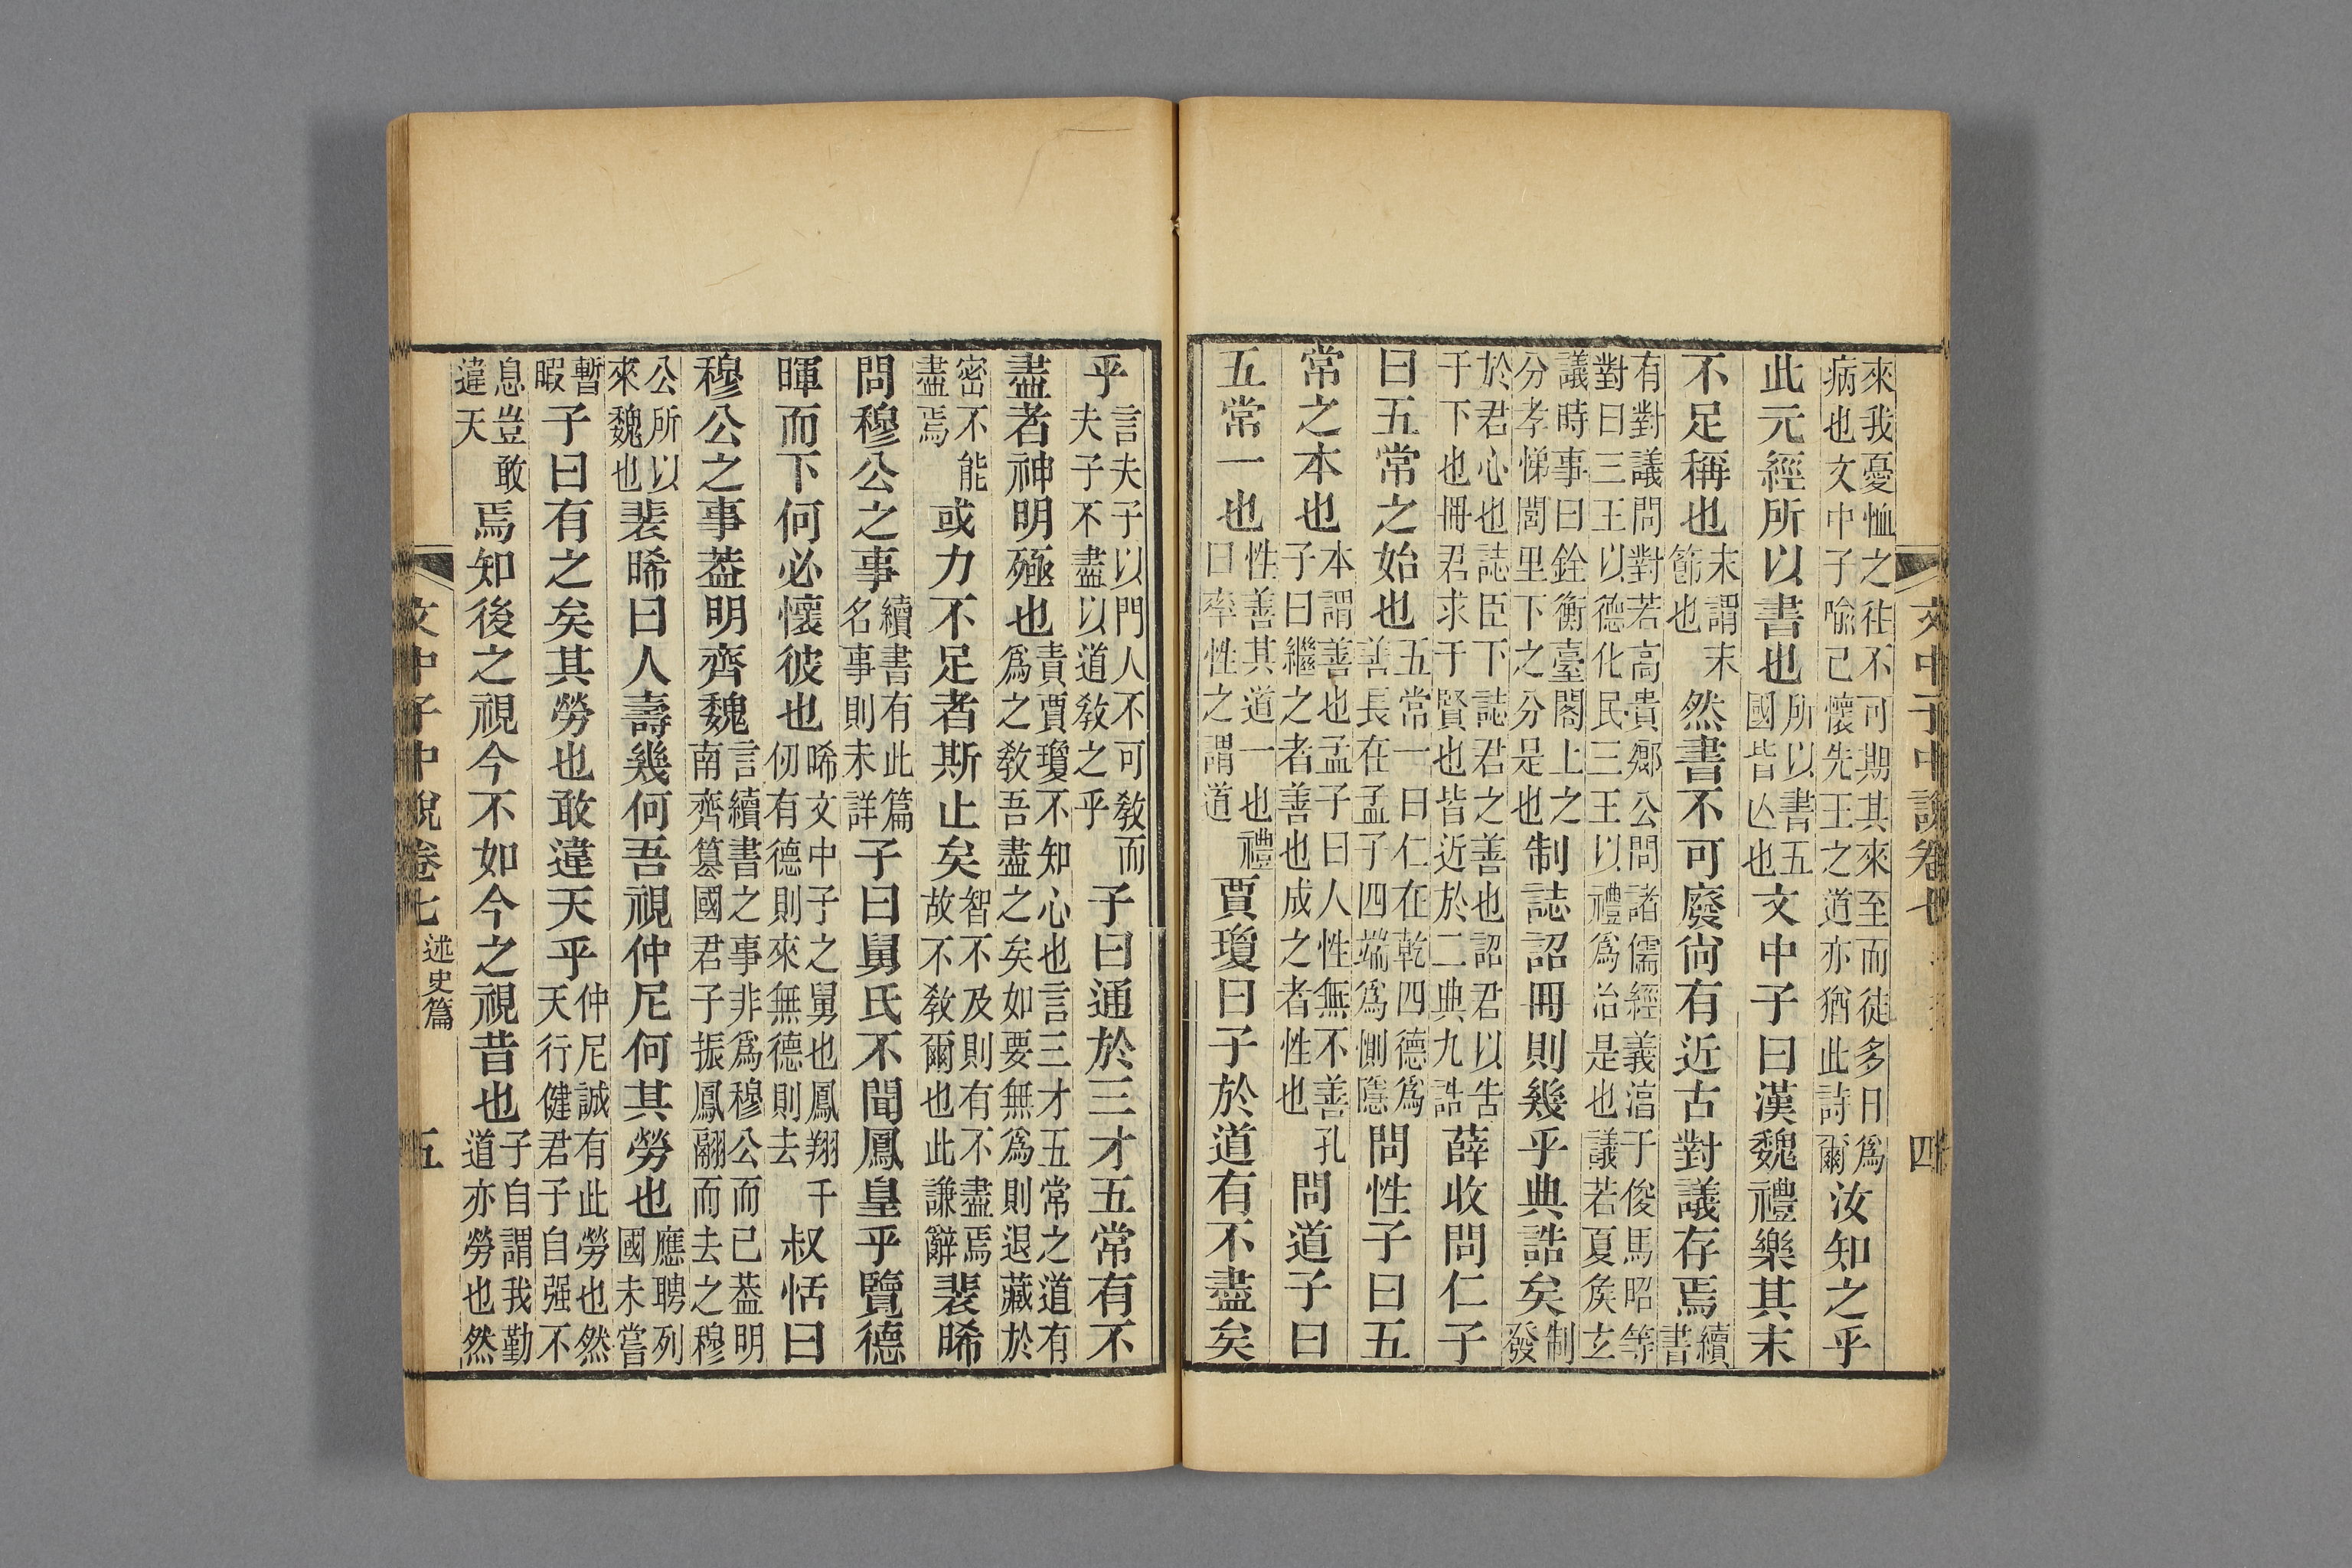 文中子中說卷七 四
來我憂恤之往不可期其來至而徒多日爲病也文中子喻己懷先王之道亦猶此詩爾汝知之乎
此元經所以書也所以書五國皆亾也文中子曰漢魏禮樂其末
不足稱也末謂末節也然書不可廢尙有近古對議存焉續書
有對議問對若高貴鄉公問諸儒經義湻于俊馬昭等對曰三王以德化民三王以禮爲治是也議若夏矦玄
議時事曰銓衡臺閣上之分孝悌閭里下之分足也制誌詔冊則幾乎典誥矣制發
於君心也誌臣下誌君之善也詔君以告于下也冊君求于賢也皆近於二典九誥薛收問仁子
曰五常之始也五常一曰仁在乾四德爲善長在孟子四端爲惻隱問性子曰五
常之本也本謂善也孟子曰人性無不善孔子曰繼之者善也成之者性也問道子曰
五常一也性善其道一也禮曰率性之謂道賈瓊曰子於道有不盡矣
乎言夫子以門人不可敎而夫子不盡以道敎之乎子曰通於三才五常有不
盡者神明殛也責賈瓊不知心也言三才五常之道有爲之敎吾盡之矣如要無爲則退藏於
密不能盡焉或力不足者斯止矣智不及則有不盡焉故不敎爾也此謙辭裴晞
問穆公之事續書有此篇名事則未詳子曰舅氏不聞鳳皇乎覽德
暉而下何必懷彼也晞文中子之舅也鳳翔千仞有德則來無德則去叔恬曰
穆公之事葢明齊魏言續書之事非爲穆公而已葢明南齊篡國君子振鳳翮而去之穆
公所以來魏也裴晞曰人壽幾何吾視仲尼何其勞也應聘列國未嘗
暫暇子曰有之矣其勞也敢違天乎仲尼誠有此勞也然天行健君子自强不
息豈敢違天焉知後之視今不如今之視昔也子自謂我勤道亦勞也然
文中子中說卷七 述史篇 五